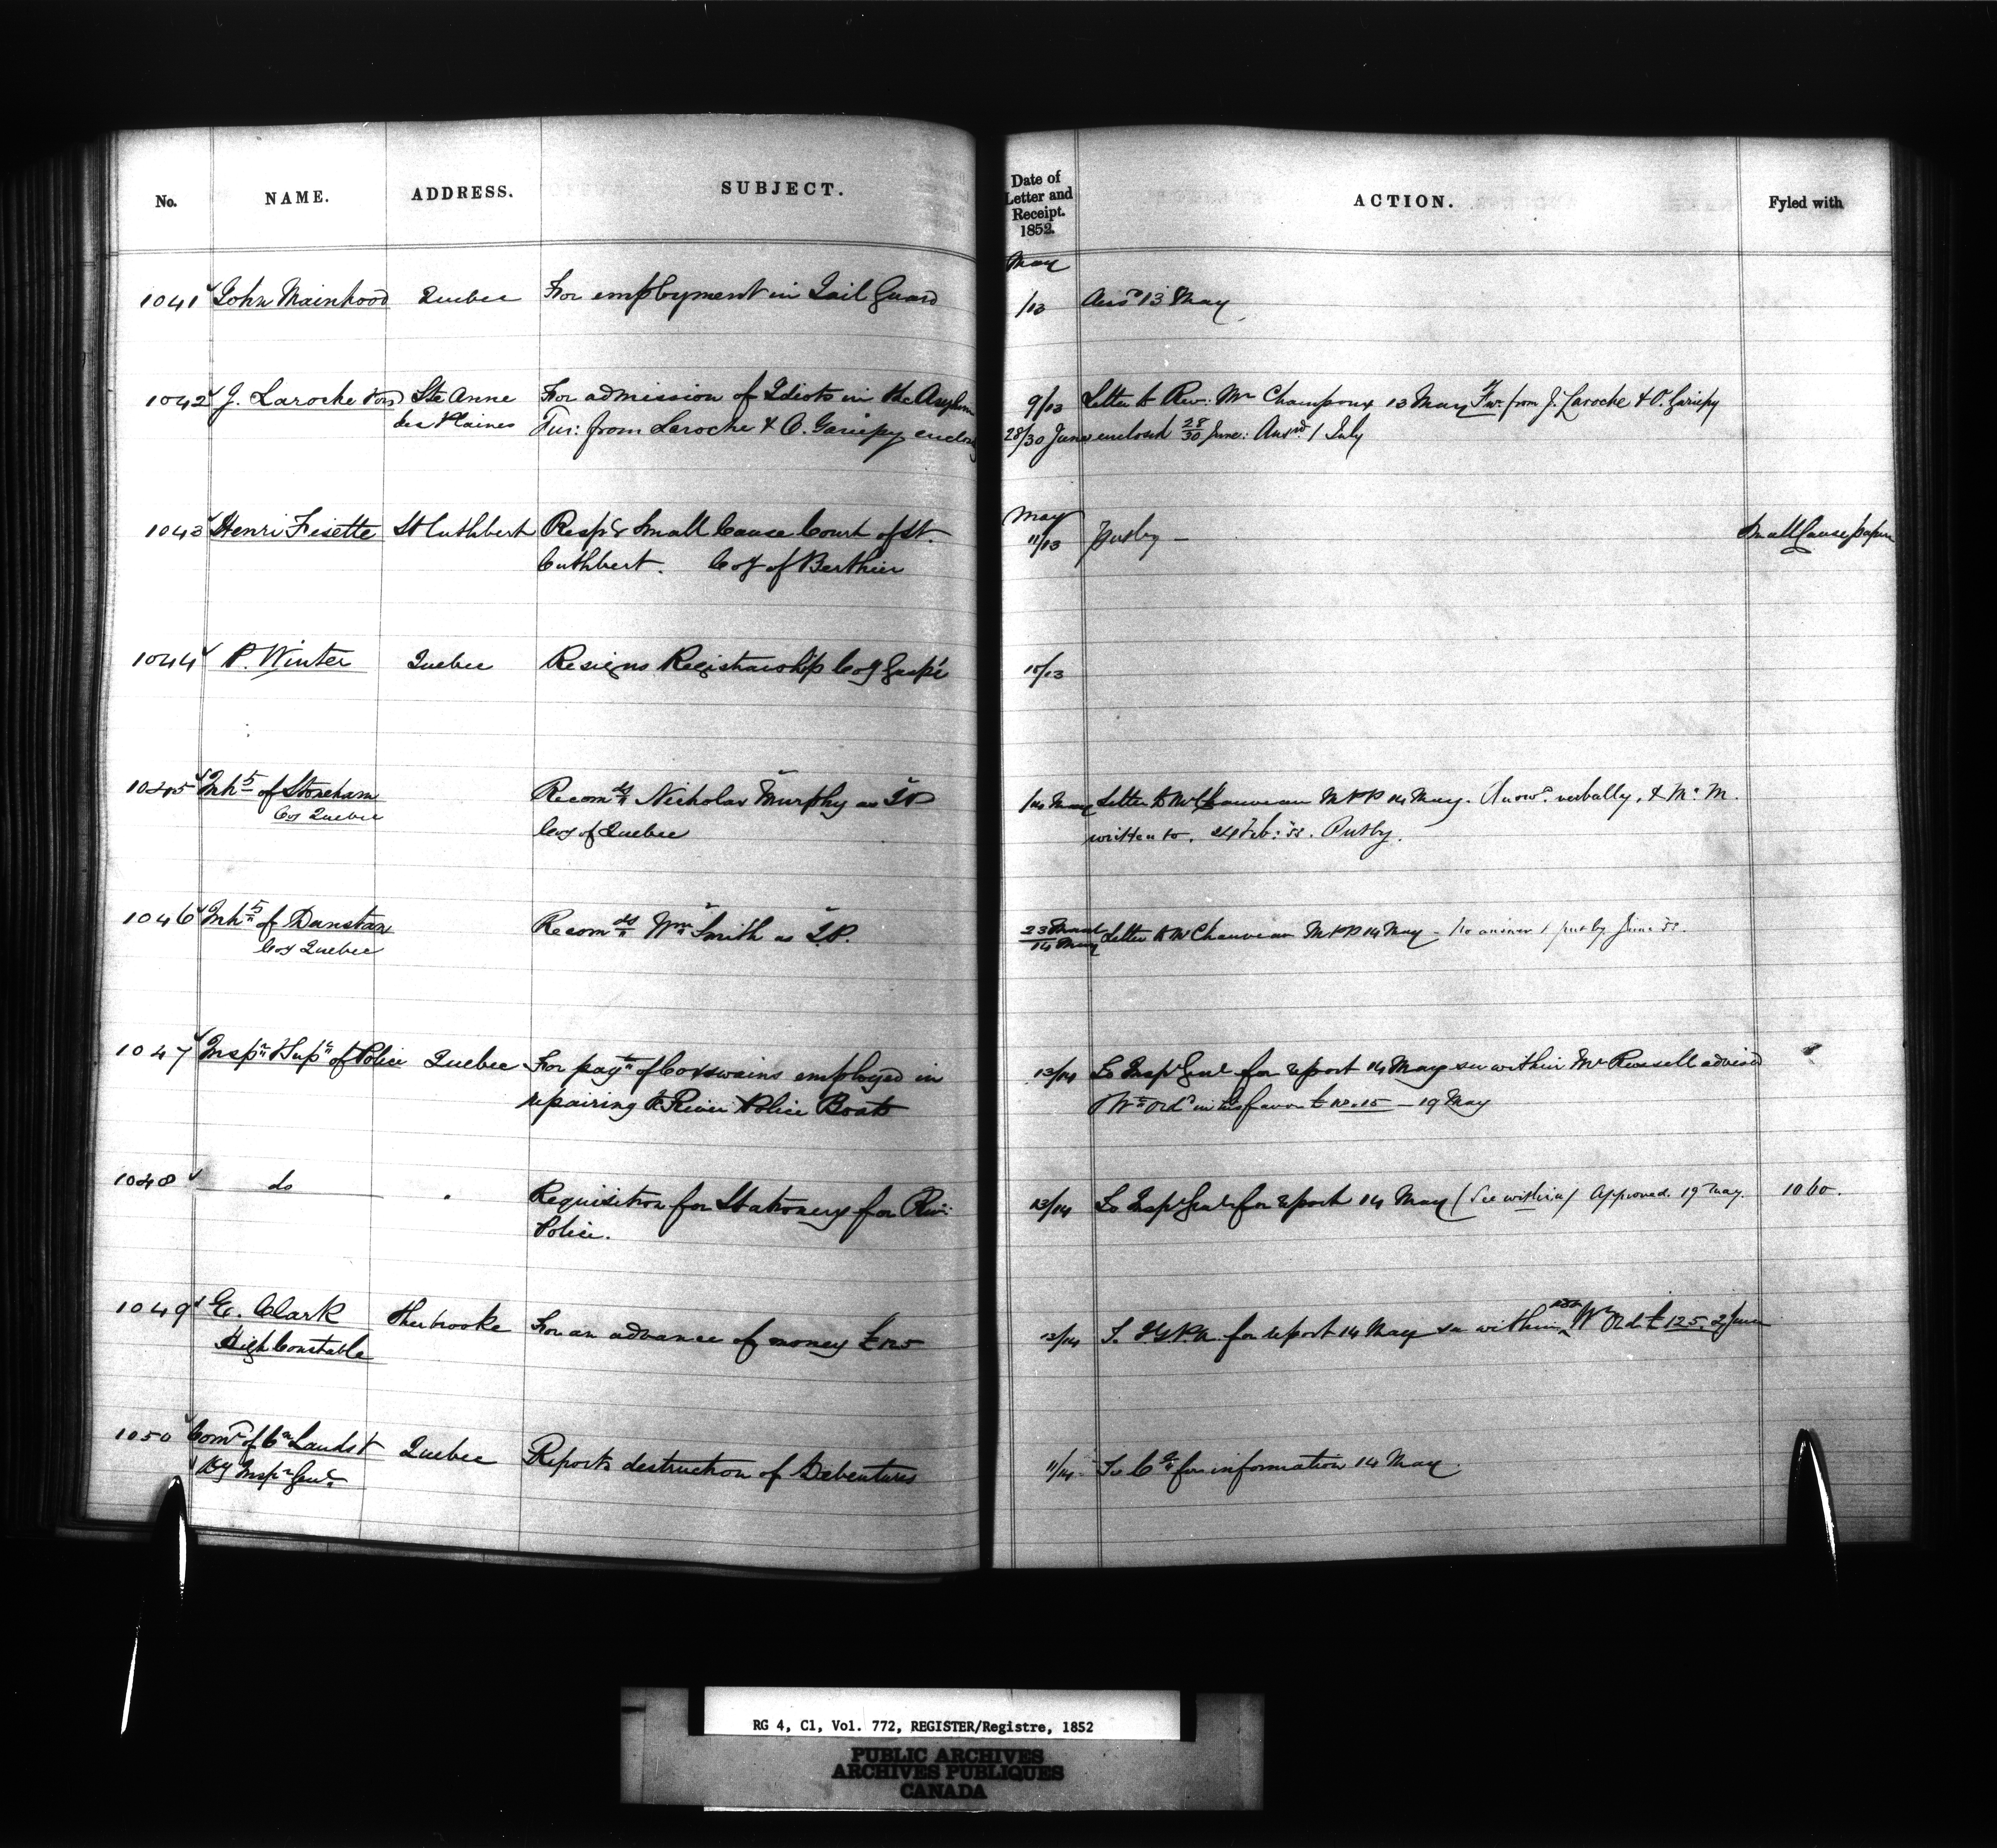 No. NAME. ADDRESS. SUBJECT.
Date of Letter and Receipt. 1852. ACTION. Fyled with
May
1041 John Mainhood Quebec For employment in Gail Guard /13 Ansd 13 May
1042 J. Laroche Ste Anne For admission of Idiots in the Asylum 9/13 Letter to Rev: Mr Champoux 13 May Fur. from J. Laroche & O. Gariepy
des Plaines Fur: from Laroche & O. Gariepy 28/30 June enclosed 28/30 June: Ansd. 1 July
1043 Henri Fisette St Cuthbert Respg Small Cause Court of St. May 11/13 putby — Small Cause papers
Cuthbert. Coy of Berthier
1044 P. Winter Quebec Resigns Registrarship Coy Gaspé 10/13
1045 Inhts of Stoneham Recomds Nicholas Murphy as JP /14 May Letter to Mr Chauveau MPP 14 May. Answd. verbally, & Mr M.
Coy Quebec Coy of Quebec written to. 24 Feb: 53. Putby.
1046 Inhts of Dunstan Recomds Wm Smith as J.P. 23 March/14 May Letter to Mr Chauveau MPP 14 May — No answer / put by June 53.
Coy Quebec
1047 Inspr & Supt of Police Quebec For payt of Coxswains employed in 13/14 To Inspr Genl for report 14 May see within Mr Russell advised
repairing the River Police Boats Wt Ord in his favor £10.15 — 19 May
1048 do Requisition for Stationery for Riv: 13/14 To Inspr Genl for report 14 May (See within) Approved. 19 May. 1060.
Police.
1049 E. Clark Sherbrooke For an advance of money £125 12/14 To for report 14 May see within Wt Ord. £125. 2 June
High Constable
1050 Comr of Cn Lands & Quebec Reports destruction of Debentures 11/14 To for information 14 May.
Dy Inspr Genl
RG 4, C1, Vol. 772, REGISTER/Registre, 1852
PUBLIC ARCHIVES
ARCHIVES PUBLIQUES
CANADA